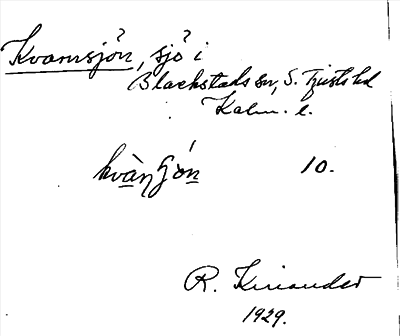 Kvarnsjön, sjö i
Blackstads sn, S. Tjusts hd
Kalm. l.
kvàŋʃón 10.
R. Kinander
1929.